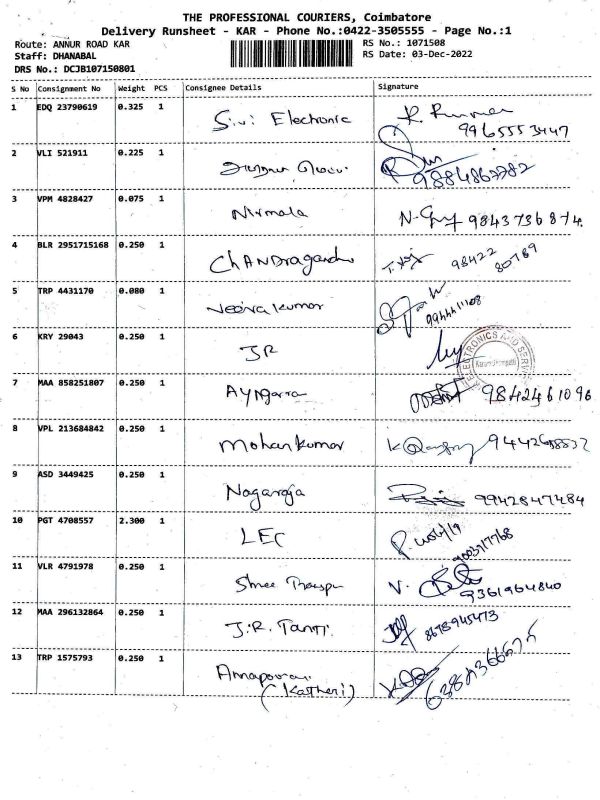 THE PROFESSIONAL COURIERS, Coimbatore
Delivery Runsheet - KAR - Phone No.:0422-3505555 - Page No.:1
Route: ANNUR ROAD KAR
RS No.: 1071508
Staff: DHANABAL
RS Date: 03-Dec-2022
DRS No.: DCJB107150801
S No Consignment No Weight PCS Consignee Details Signature
1 EDQ 23790619 0.325 1 Sivi Electronic
9965553447
2 VLI 521911 0.225 1
3 VPM 4828427 0.075 1 Nirmala 9843736874
4 BLR 2951715168 0.250 1 Chandragandhi 98422
80789
5 TRP 4431170 0.080 1 Neerakumar
9944411108
6 KRY 29043 0.250 1 JR
ELECTRONICS AND SERV
7 MAA 858251807 0.250 1 9842461096
8 VPL 213684842 0.250 1 Mohankumar
9 ASD 3449425 0.250 1 Nagaraja 9942847484
10 PGT 4708557 2.300 1 LEC
11 VLR 4791978 0.250 1 Shree
9361964840
12 MAA 296132864 0.250 1 J.R. 8678945473
13 TRP 1575793 0.250 1